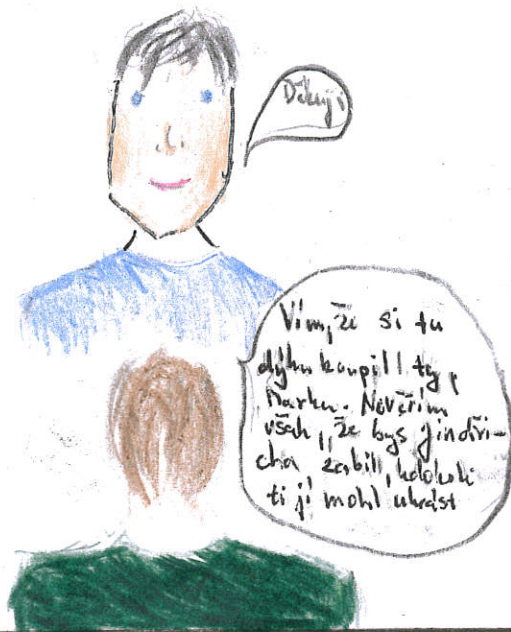 Děkuji
Vím, že si tu
dýku koupil ty,
Marku. Nevěřím
však, že bys Jindři-
cha zabil, kdokoli
ti jí mohl ukrást